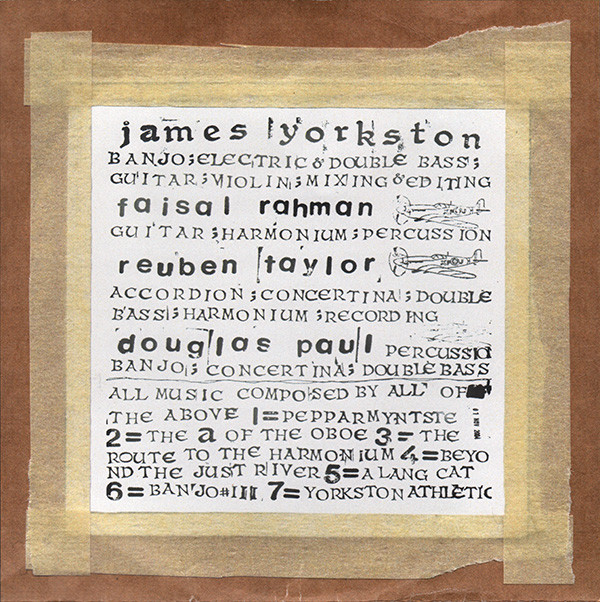 james yorkston
BANJO; ELECTRIC & DOUBLE BASS;
GUITAR; VIOLIN; MIXING & EDITING
faisal rahman
GUITAR; HARMONIUM; PERCUSSION
reuben taylor
ACCORDION; CONCERTINA; DOUBLE
BASS; HARMONIUM; RECORDING
douglas paul PERCUSSIO
BANJO; CONCERTINA; DOUBLE BASS
ALL MUSIC COMPOSED BY ALL OF
THE ABOVE 1=PEPPARMYNTSTE
2=THE a OF THE OBOE 3=THE
ROUTE TO THE HARMONIUM 4=BEYO
ND THE JUST RIVER 5=A LANG CAT
6=BANJO#III 7=YORKSTON ATHLETIC